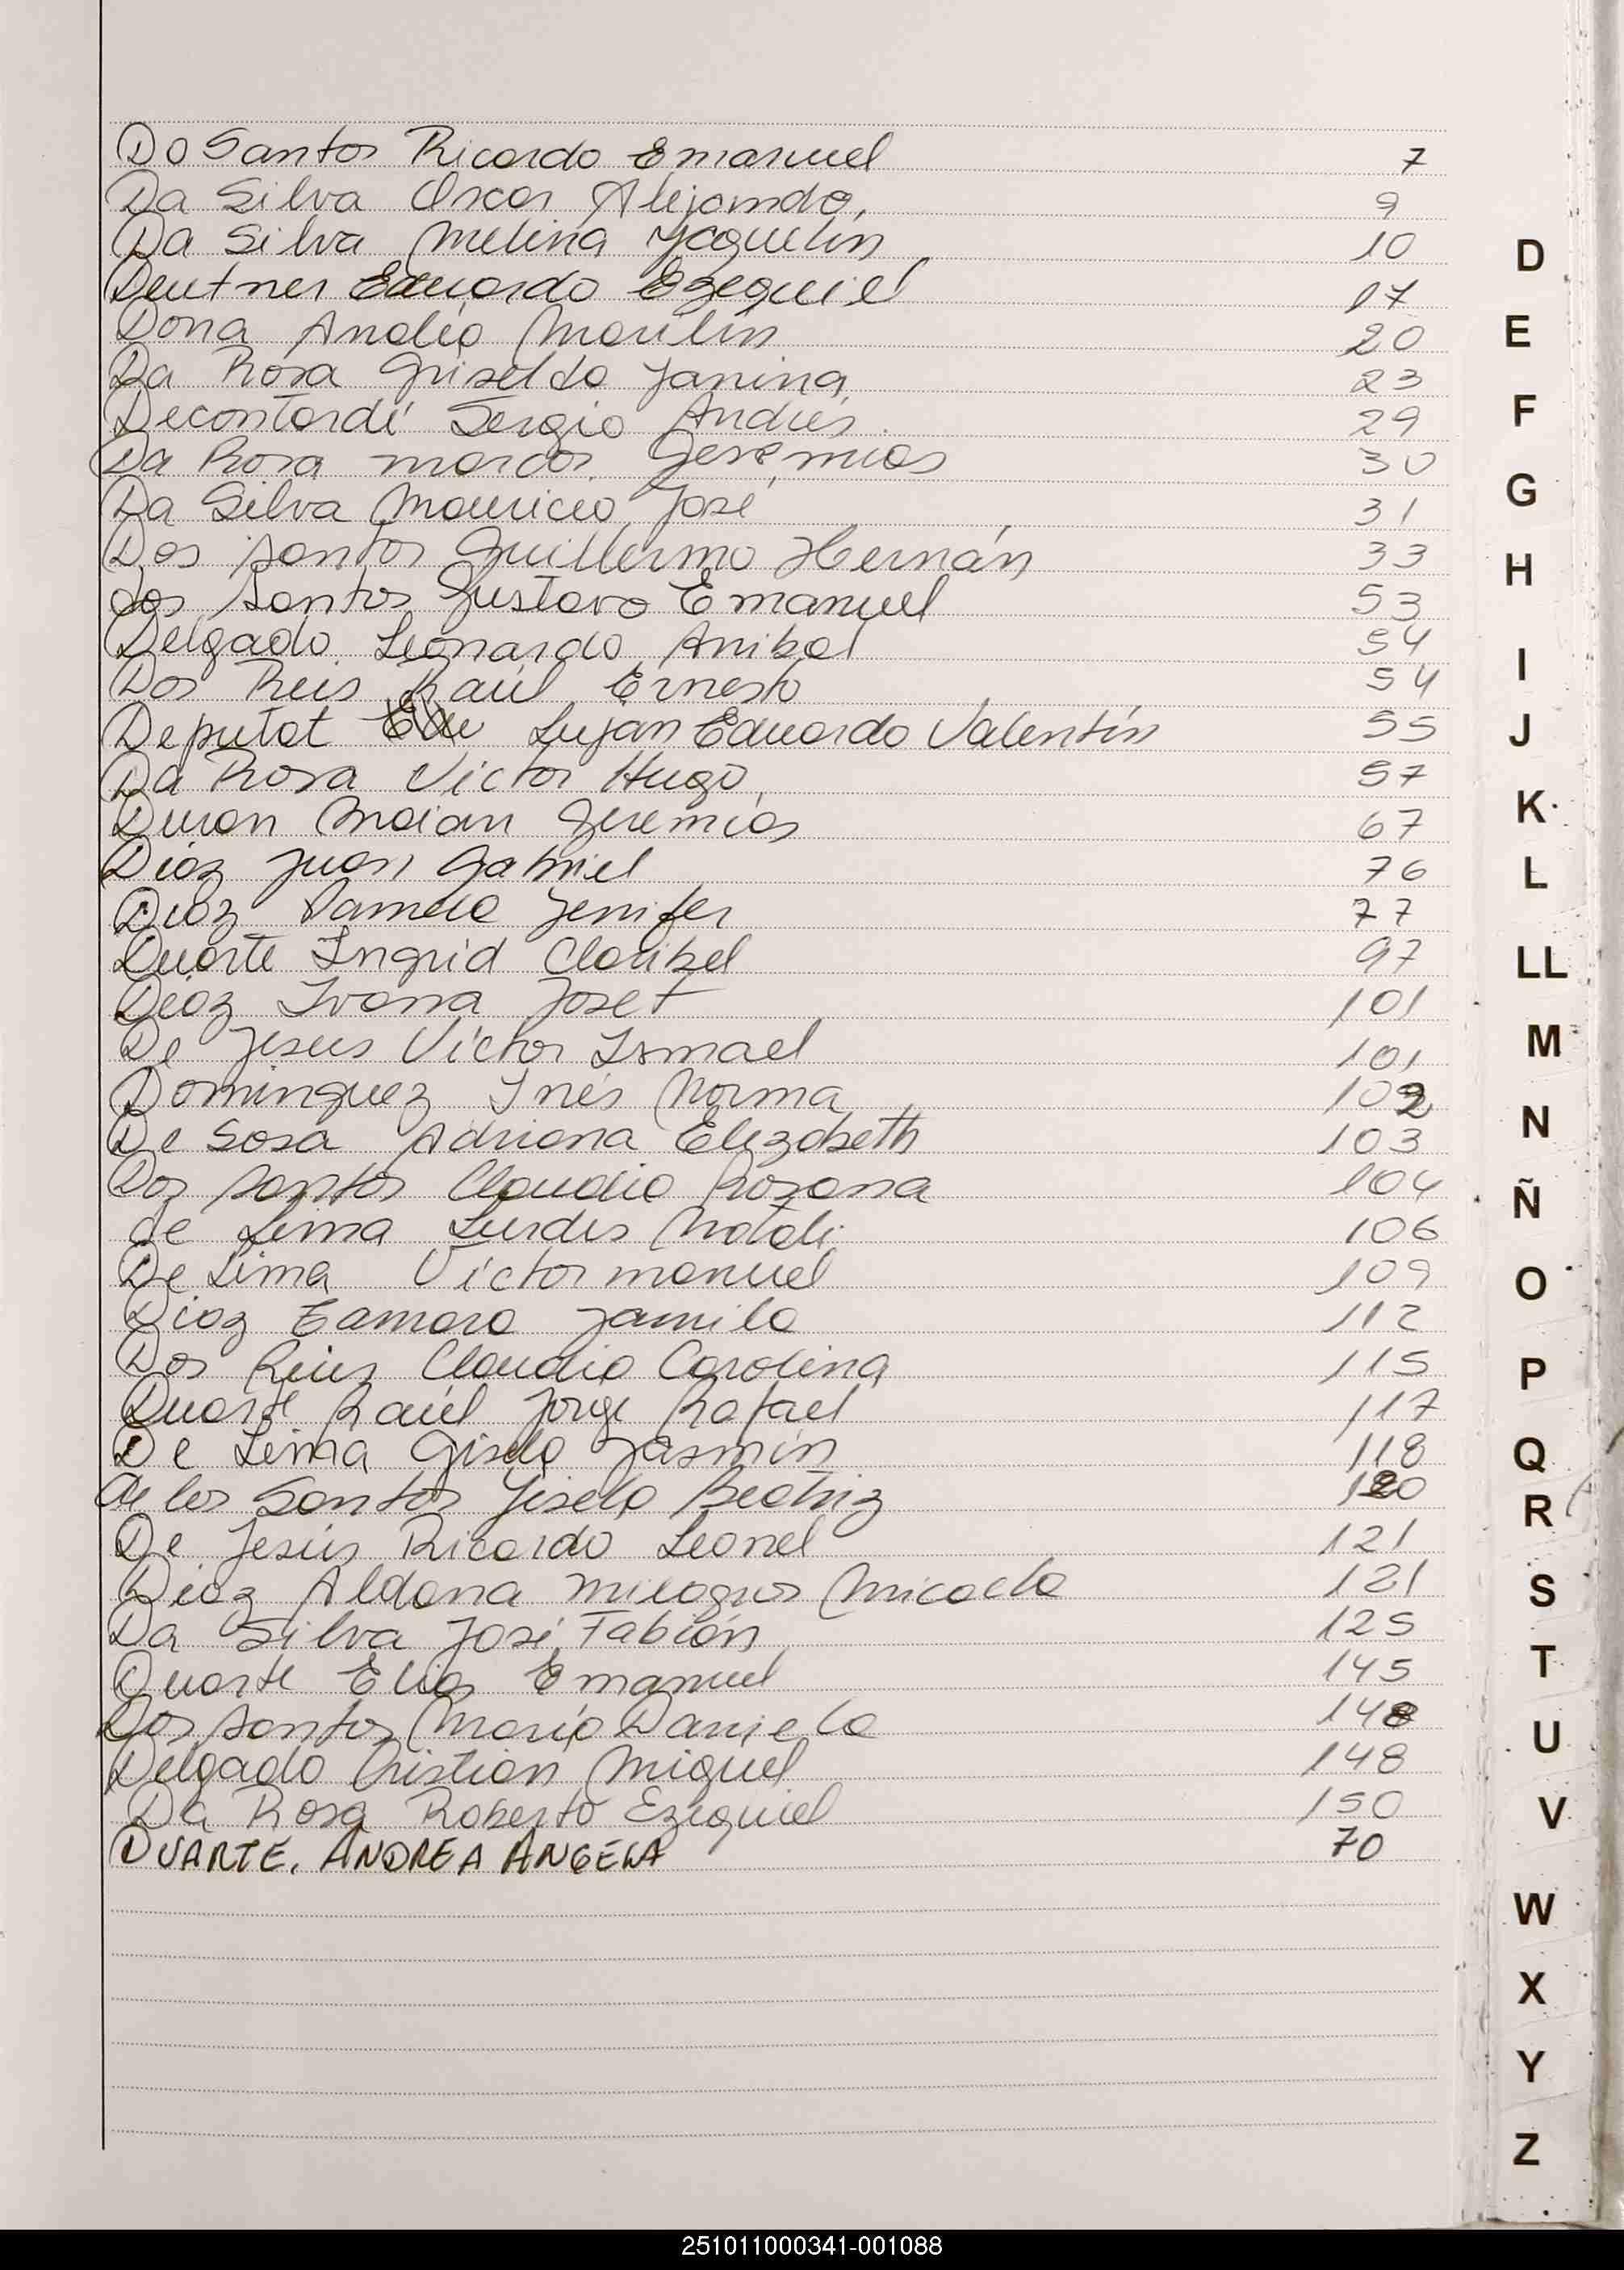 Do Santos Ricardo Emanuel 7
Da Silva Oscar Alejandro, 9
Da Silva Melina Yaquelin 10
Deutner Eduardo Ezequiel 17
Dona Analia Marilin 20
Da Rosa Griselda Janina 23
Decontardi Sergio Andres. 29
Da Rosa marcos Geremias 30
Da Silva Mauricio José 31
Dos santos Guillermo Hernán 33
dos santos Gustavo Emanuel 53
Delgado Leonardo Anibal 54
Dos Reis Raúl Ernesto 54
Deputat Lujan Eduardo Valentín 55
Da Rosa Victor Hugo, 57
Duran Maian Geremias 67
Diaz Juan Gabriel 76
Diaz Pamela Jenifer 77
Duarte Ingrid Claribel 97
Diaz Ivana Joset 101
De Jesus Víctor Ismael 101
Dominguez Inés Norma 102
De Sosa Adriana Elizabeth 103
Dos santos Claudia Rosana 104
de Lima Lurdes Natali 106
De Lima Victor manuel 109
Diaz Tamara Jamila 112
Dos Reis Claudia Carolina 115
Duarte Raúl Jorge Rafael 117
De Lima Gisela Jasmín 118
de los Santos Jisela Beatriz 120
De Jesús Ricardo Leonel 121
Diaz Aldana milagros Micaela 121
Da Silva José Fabián 125
Duarte Elias Emanuel 145
Dos santos Maria Daniela 148
Delgado Cristian Miguel 148
Da Rosa Roberto Ezequiel 150
DUARTE, ANDREA ANGELA 70
D
E
F
G
H
I
J
K
L
LL
M
N
Ñ
O
P
Q
R
S
T
U
V
W
X
Y
Z
251011000341-001088